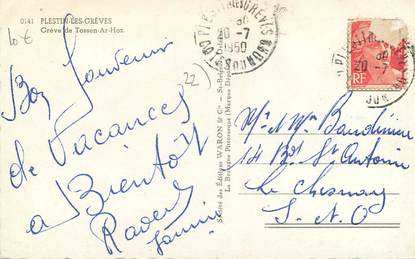 0141 PLESTIN-LES-GRÈVES
Grève de Tossen-Ar-Hoz.
10 €
Bon Souvenir
de Vacances
a Bientôt
22
Sociétés des Editions WARON & Cie - St-Brieuc
La Bretagne Pittoresque (Marque Dép
PLESTIN-LES-GRÈVES
20-7
1950
COTES DU NORD
PLESTIN
20-7
RF
Mr et Mme Baudinière
14 Bd St Antoine
Le Chesnay
S. et O